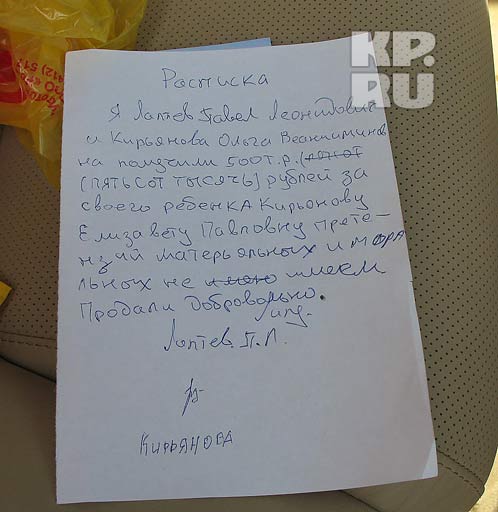 KP.
RU
Расписка
Я Лаптев Павел Леонидович
и Кирьянова Ольга Веанниминов
на получили 500 т.р. (
(пятьсот тысячь) рублей за
своего ребенка Кирьонову
Елизавету Павловну прете-
нзий матерьяльных и мора
льных не имеем
Продали добровольно.
Лаптев П.Л.
Кирьянова